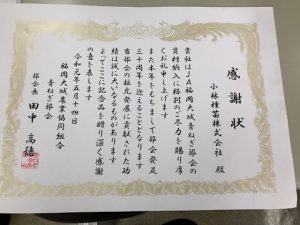 感謝状
小林種苗株式会社 殿
貴社はJA福岡大城青ねぎ部会の
資材納入に格別のご尽力を賜り厚
くお礼申し上げます
また本年をもちまして部会発足
三十周年を迎えることとなります
当部会の拡充発展に貢献された功
績は誠に大いなるものがあります
よってここに記念品を贈り深く感謝
の意を表します
令和元年五月十四日
福岡大城農業協同組合
青ねぎ部会
部会長 田中 高